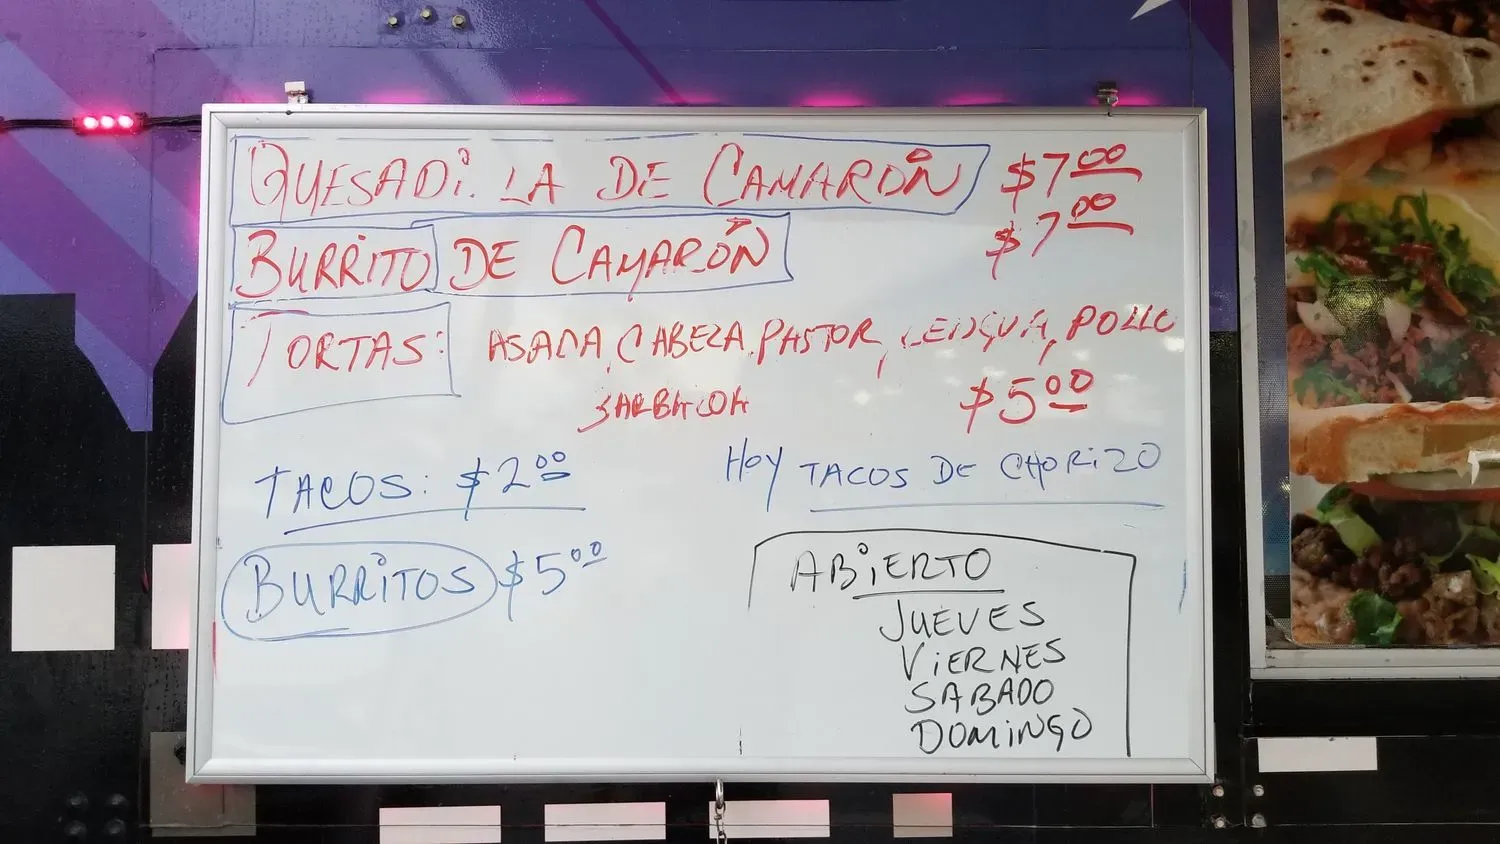 QUESADILLA DE CAMARÓN $7.00
BURRITO DE CAMARÓN $7.00
TORTAS: ASADA, CABEZA, PASTOR, LENGUA, POLLO
BARBACOA $5.00
TACOS: $2.00
HOY TACOS DE CHORIZO
BURRITOS $5.00
ABIERTO
JUEVES
VIERNES
SABADO
DOMINGO